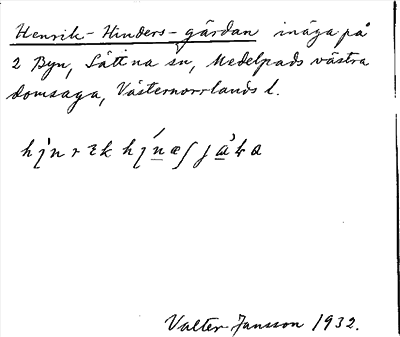 Henrik-Hinders-gärdan inäga på
2 Byn, Sättna sn, Medelpads västra
domsaga, Västernorrlands l.
Valter Jansson 1932.